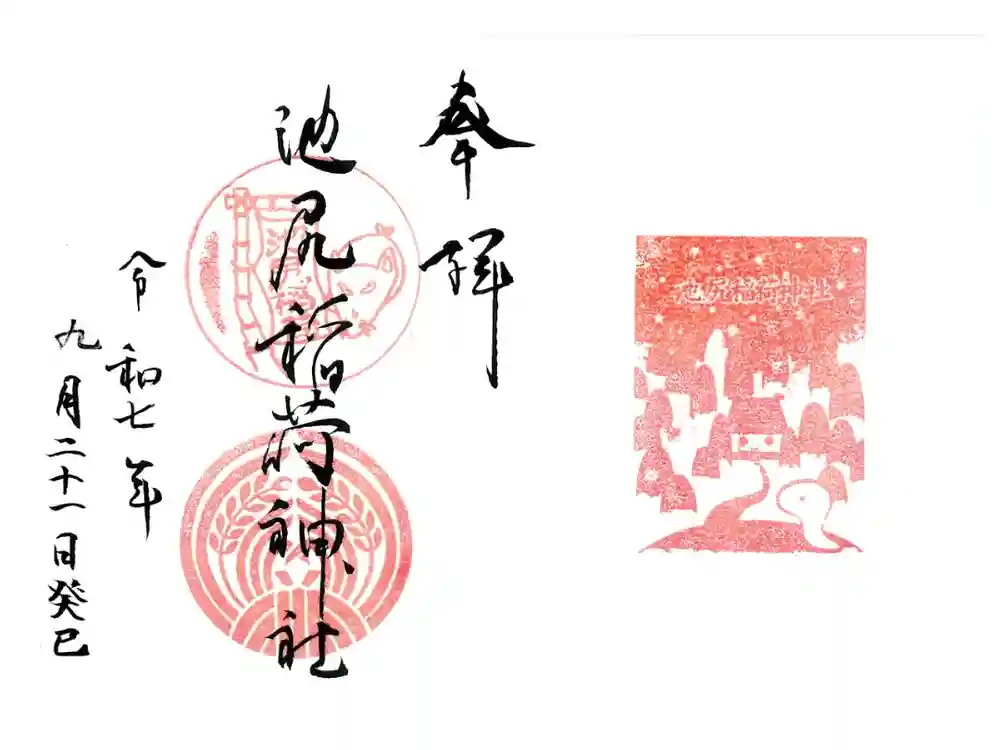 池尻稲荷神社
奉拝
池尻稲荷神社
令和七年
九月二十一日癸巳